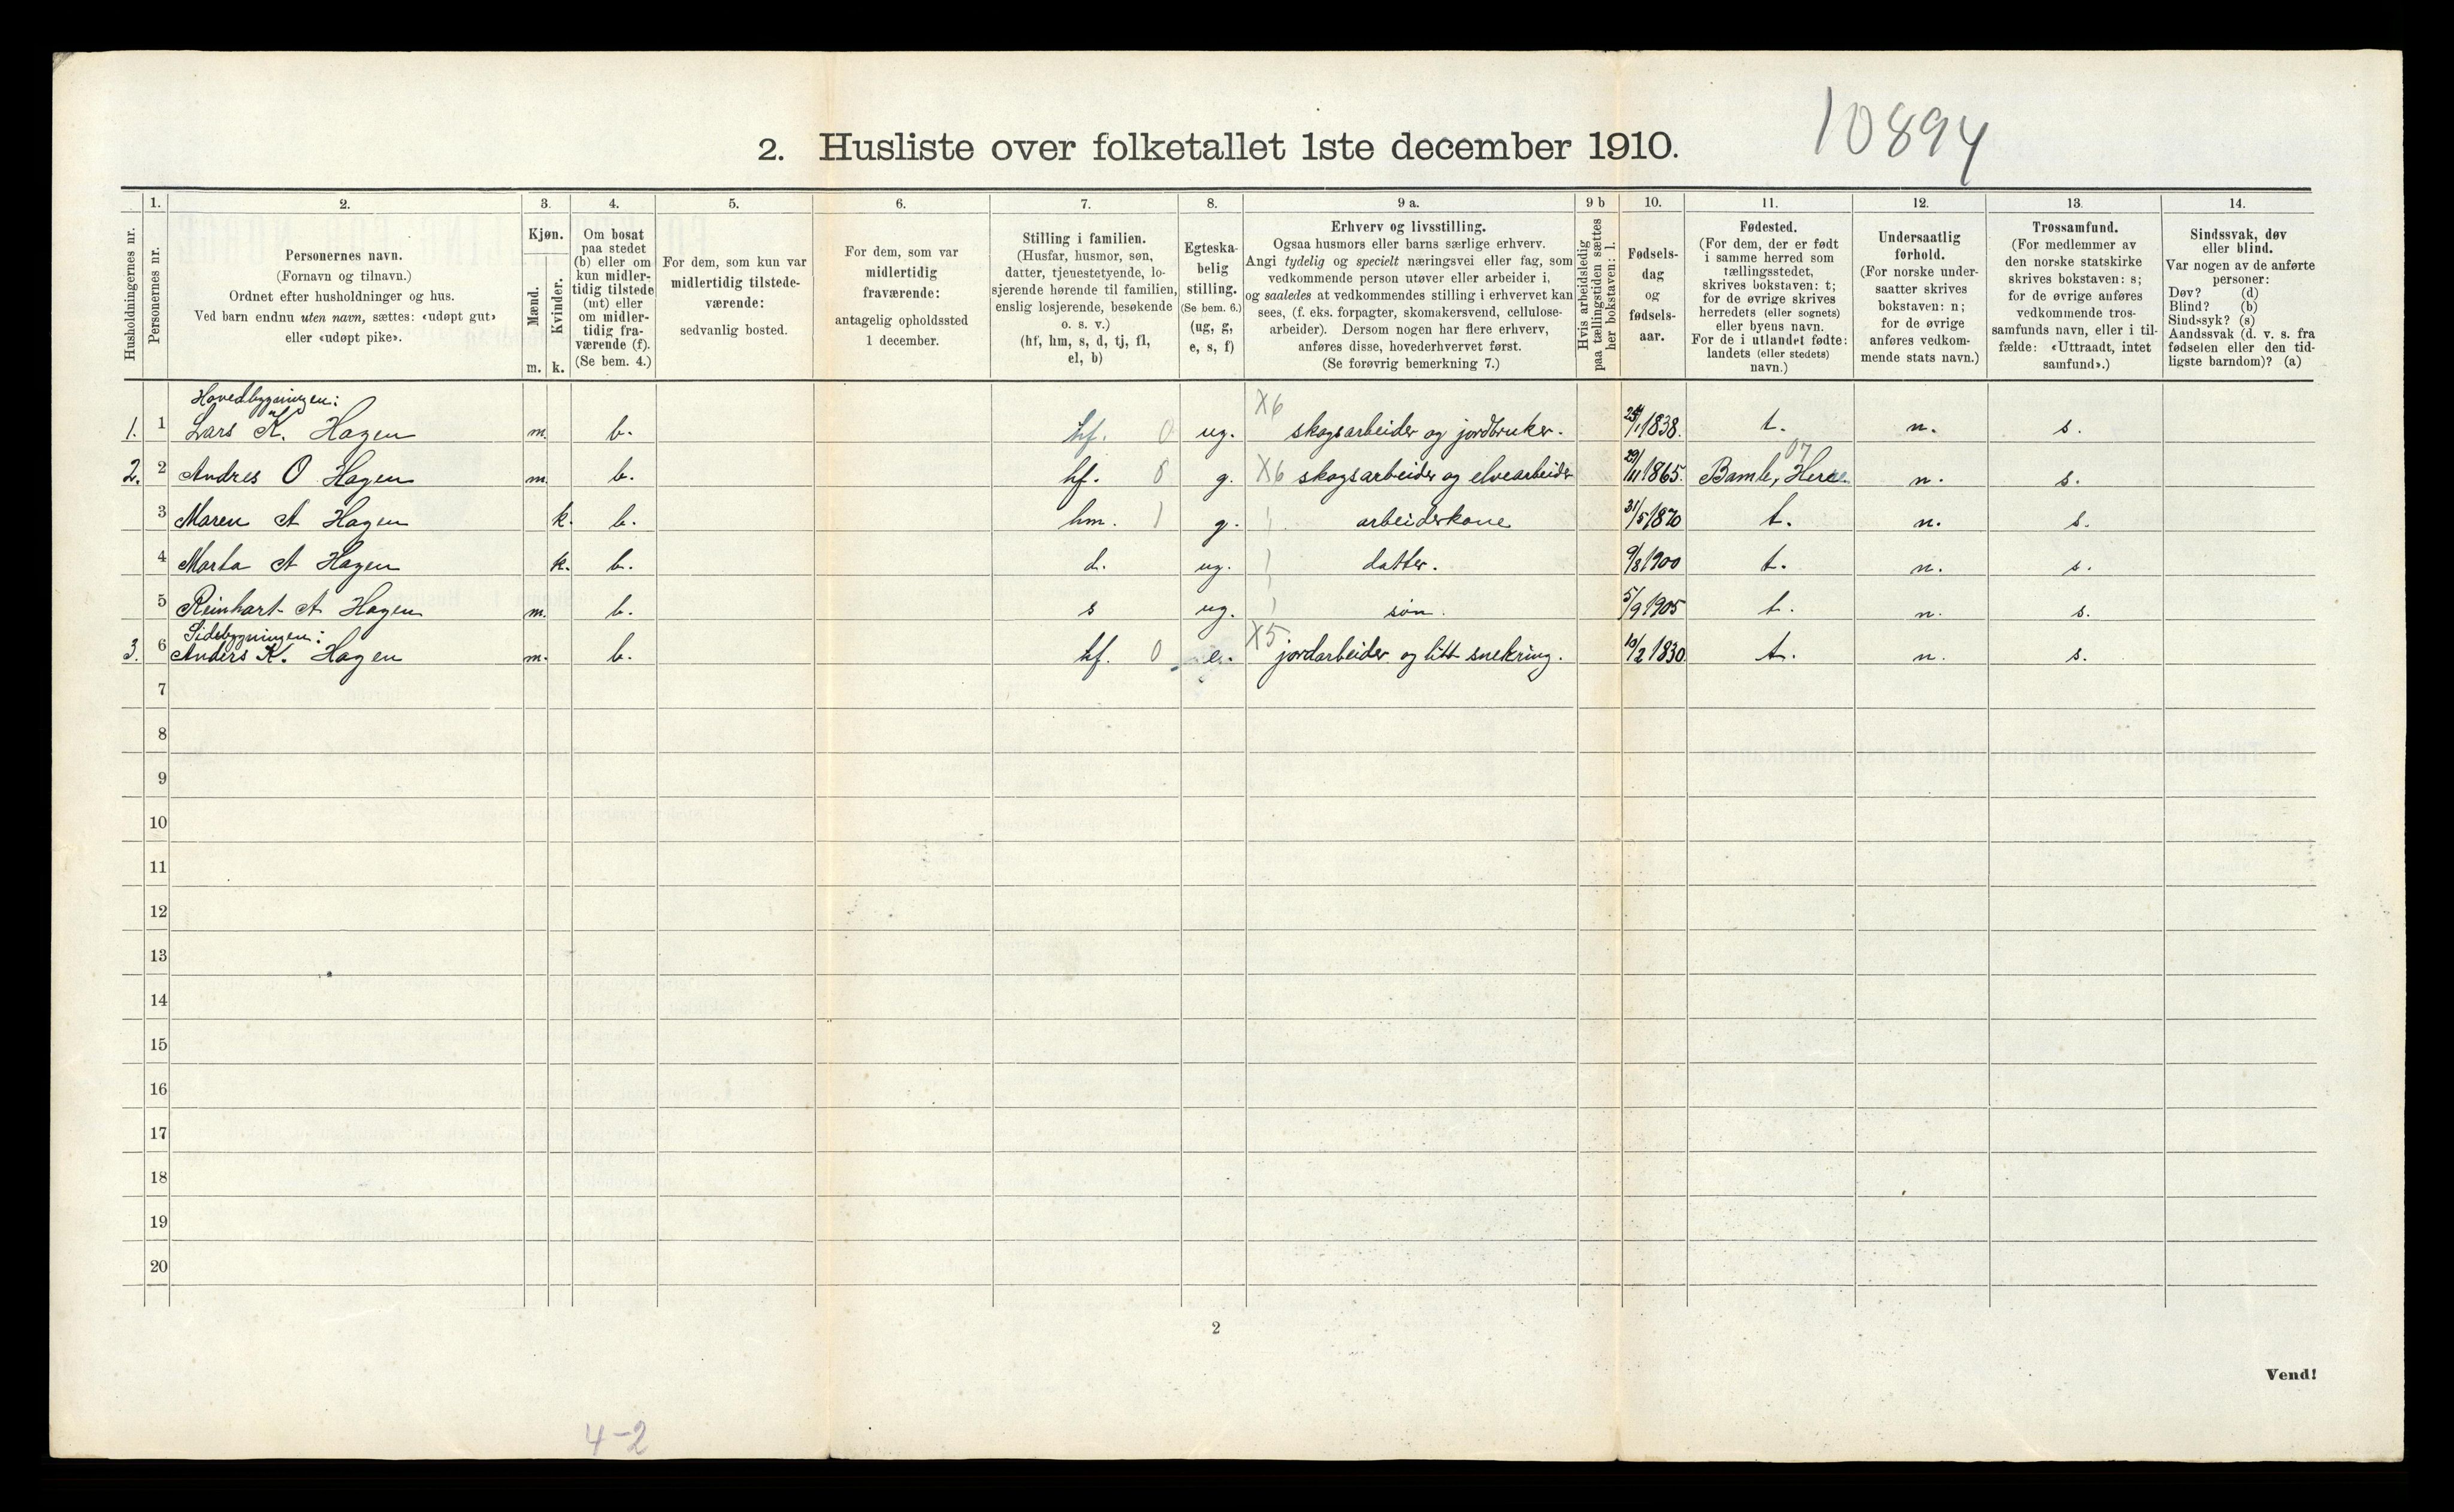 10894
2. Husliste over folketallet 1ste december 1910.
Husholdningernes nr.
1.
Personernes nr.
2.
Personernes navn.
(Fornavn og tilnavn.)
Ordnet efter husholdninger og hus.
Ved barn endnu uten navn, sættes: «udøpt gut»
eller «udøpt pike».
3.
Kjøn.
Mænd.
Kvinder.
m. k.
4.
Om bosat
paa stedet
(b) eller om
kun midler-
tidig tilstede
(mt) eller
om midler-
tidig fra-
værende (f).
(Se bem. 4.)
5.
For dem, som kun var
midlertidig tilstede-
værende:
sedvanlig bosted.
6.
For dem, som var
midlertidig
fraværende:
antagelig opholdssted
1 december.
7.
Stilling i familien.
(Husfar, husmor, søn,
datter, tjenestetyende, lo-
sjerende hørende til familien,
enslig losjerende, besøkende
o. s. v.)
(hf, hm, s, d, tj, fl,
el, b)
8.
Egteska-
belig
stilling.
(Se bem. 6.)
(ug, g,
e, s, f)
9 a.
Erhverv og livsstilling.
Ogsaa husmors eller barns særlige erhverv.
Angi tydelig og specielt næringsvei eller fag, som
vedkommende person utøver eller arbeider i,
og saaledes at vedkommendes stilling i erhvervet kan
sees, (f. eks. forpagter, skomakersvend, cellulose-
arbeider). Dersom nogen har flere erhverv,
anføres disse, hovederhvervet først.
(Se forøvrig bemerkning 7.)
9 b
Hvis arbeidsledig
paa tællingstiden sættes
her bokstaven: l.
10.
Fødsels-
dag
og
fødsels-
aar.
11.
Fødested.
(For dem, der er født
i samme herred som
tællingsstedet,
skrives bokstaven: t;
for de øvrige skrives
herredets (eller sognets)
eller byens navn.
For de i utlandet fødte:
landets (eller stedets)
navn.)
12.
Undersaatlig
forhold.
(For norske under-
saatter skrives
bokstaven: n;
for de øvrige
anføres vedkom-
mende stats navn.)
13.
Trossamfund.
(For medlemmer av
den norske statskirke
skrives bokstaven: s;
for de øvrige anføres
vedkommende tros-
samfunds navn, eller i til-
fælde: «Uttraadt, intet
samfund».)
14.
Sindssvak, døv
eller blind.
Var nogen av de anførte
personer:
Døv? (d)
Blind? (b)
Sindssyk? (s)
Aandssvak (d. v. s. fra
fødselen eller den tid-
ligste barndom)? (a)
Hovedbygningen:
1. 1 Lars K. Hagen m. b. hf. 0 ug. X6 skogsarbeider og jordbruker. 1838. t. n. s.
2. 2 Andres O Hagen m. b. hf. 0 g. X6 skogsarbeider og elvearbeider 29/11 1865. Bamle, Herre 07 n. s.
3 Maren A Hagen k. b. hm. 1 g. arbeiderkone 31/5 1870 t. n. s.
4 Marta A Hagen k. b. d. ug. datter. 9/8 1900 t. n. s.
5 Reinhart A Hagen m. b. s ug. søn. 5/9 1905 t. n. s.
Sidebygningen:
3. 6 Anders K. Hagen m. b. hf. 0 e. X5 jordarbeider og litt snekring. 10/2 1830. t. n. s.
7
8
9
10
11
12
13
14
15
16
17
18
19
20
2
Vend!
4-2